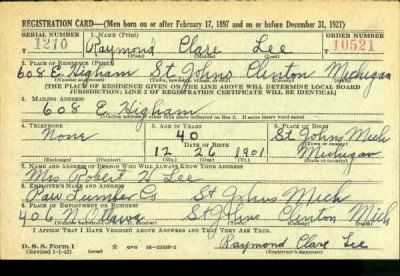 REGISTRATION CARD—(Men born on or after February 17, 1897 and on or before December 31, 1921)
SERIAL NUMBER 1. NAME (Print) ORDER NUMBER
1270 Raymond Clare Lee 10521
(First) (Middle) (Last)
2. PLACE OF RESIDENCE (Print)
608 E. Higham St Johns Clinton Michigan
(Number and street) (Town, township, village, or city) (County) (State)
[THE PLACE OF RESIDENCE GIVEN ON THE LINE ABOVE WILL DETERMINE LOCAL BOARD
JURISDICTION; LINE 2 OF REGISTRATION CERTIFICATE WILL BE IDENTICAL]
3. MAILING ADDRESS
608 E. Higham
[Mailing address if other than place indicated on line 2. If same insert word same]
4. TELEPHONE 5. AGE IN YEARS 6. PLACE OF BIRTH
None 40 St Johns Mich
DATE OF BIRTH (Town or county)
12 26 1901 Michigan
(Exchange) (Number) (Mo.) (Day) (Yr.) (State or country)
7. NAME AND ADDRESS OF PERSON WHO WILL ALWAYS KNOW YOUR ADDRESS
Mrs Robert H Lee
8. EMPLOYER'S NAME AND ADDRESS
Lumber Co St Johns Mich
9. PLACE OF EMPLOYMENT OR BUSINESS
406 N. Ottawa St Johns Clinton Mich
(Number and street or R. F. D. number) (Town) (County) (State)
I AFFIRM THAT I HAVE VERIFIED ABOVE ANSWERS AND THAT THEY ARE TRUE.
D. S. S. Form 1
(Revised 1-1-42) (over)
Raymond Clare Lee
(Registrant's signature)